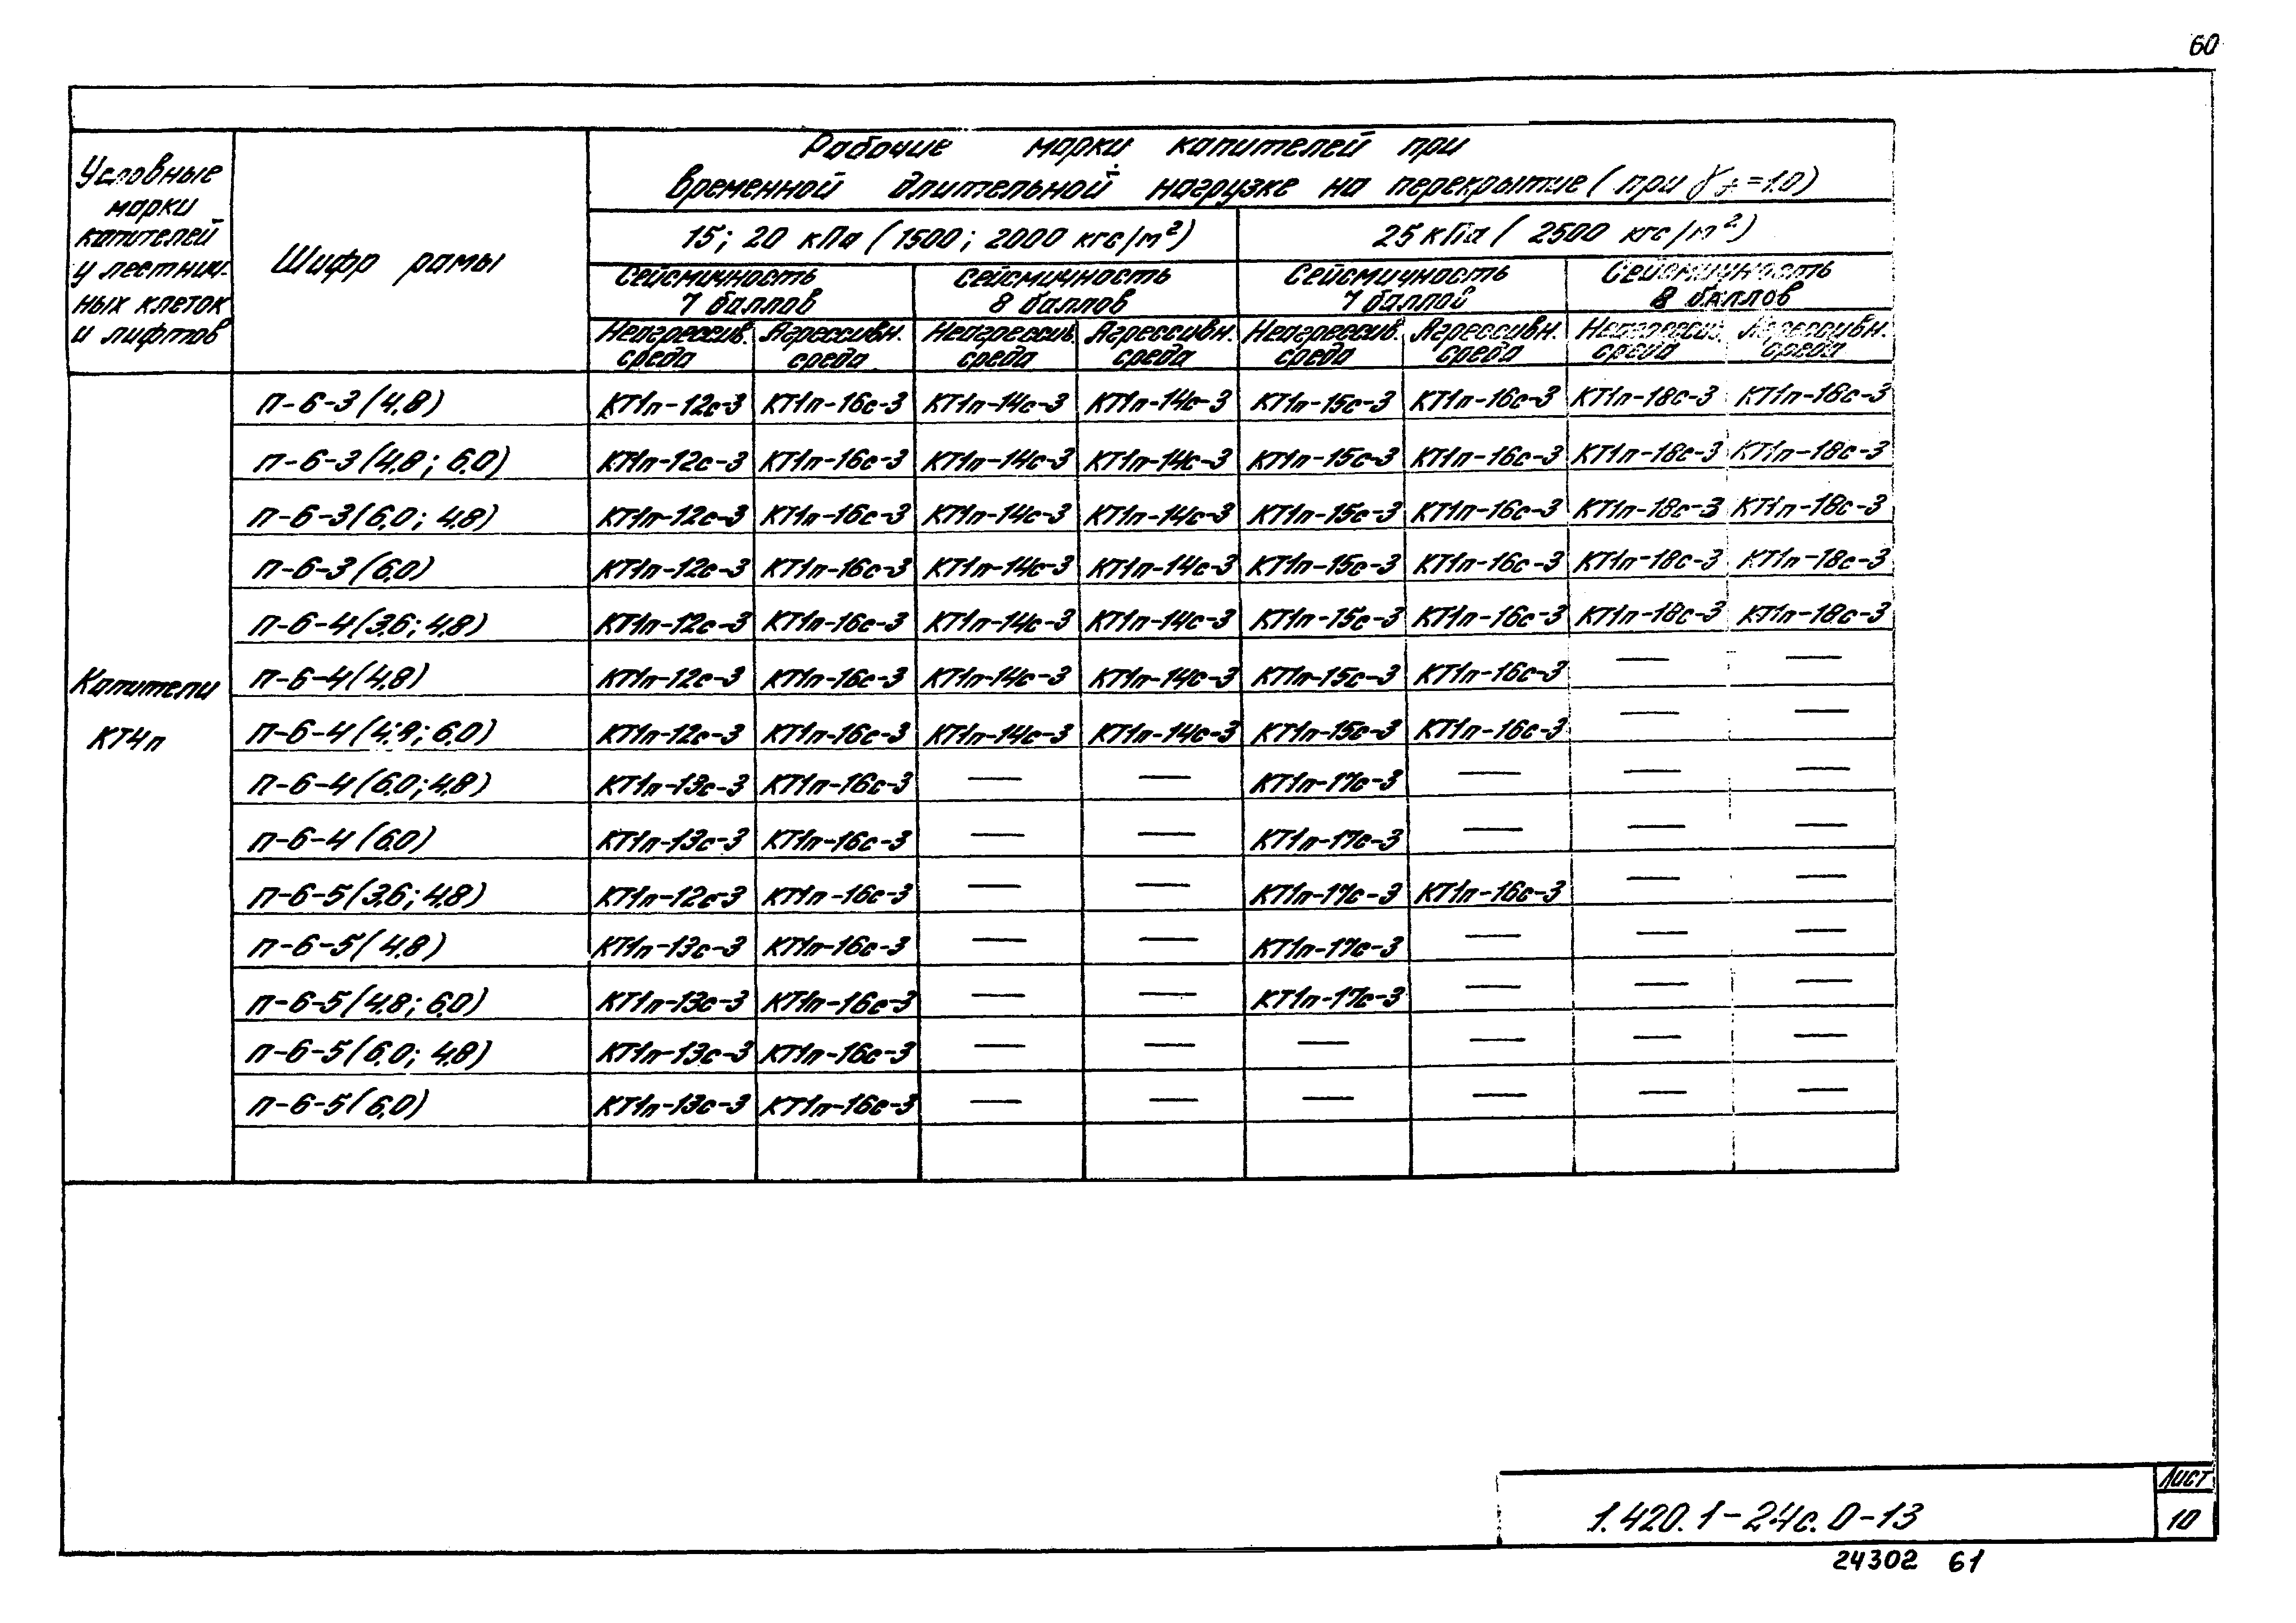 60
Рабочие марки капителей при
временной длительной нагрузке на перекрытие (при γf=1.0)
Условные
марки
капителей
у лестнич-
ных клеток
и лифтов
Шифр рамы
15; 20 кПа (1500; 2000 кгс/м²)
25 кПа (2500 кгс/м²)
Сейсмичность
7 баллов
Сейсмичность
8 баллов
Сейсмичность
7 баллой
Сейсмичность
8 баллов
Неагрессив. среда Агрессивн. среда Неагрессив. среда Агрессивн. среда Неагрессив. среда Агрессивн. среда Неагрессив. среда Агрессивн. среда
Капители
КТ4п
п-6-3 (4,8) КТ1п-12с-3 КТ1п-16с-3 КТ1п-14с-3 КТ1п-14с-3 КТ1п-15с-3 КТ1п-16с-3 КТ1п-18с-3 КТ1п-18с-3
п-6-3 (4,8; 6,0) КТ1п-12с-3 КТ1п-16с-3 КТ1п-14с-3 КТ1п-14с-3 КТ1п-15с-3 КТ1п-16с-3 КТ1п-18с-3 КТ1п-18с-3
п-6-3 (6,0; 4,8) КТ1п-12с-3 КТ1п-16с-3 КТ1п-14с-3 КТ1п-14с-3 КТ1п-15с-3 КТ1п-16с-3 КТ1п-18с-3 КТ1п-18с-3
п-6-3 (6,0) КТ1п-12с-3 КТ1п-16с-3 КТ1п-14с-3 КТ1п-14с-3 КТ1п-15с-3 КТ1п-16с-3 КТ1п-18с-3 КТ1п-18с-3
п-6-4 (3,6; 4,8) КТ1п-12с-3 КТ1п-16с-3 КТ1п-14с-3 КТ1п-14с-3 КТ1п-15с-3 КТ1п-16с-3 КТ1п-18с-3 КТ1п-18с-3
п-6-4 (4,8) КТ1п-12с-3 КТ1п-16с-3 КТ1п-14с-3 КТ1п-14с-3 КТ1п-15с-3 КТ1п-16с-3 — —
п-6-4 (4,8; 6,0) КТ1п-12с-3 КТ1п-16с-3 КТ1п-14с-3 КТ1п-14с-3 КТ1п-15с-3 КТ1п-16с-3 — —
п-6-4 (6,0; 4,8) КТ1п-13с-3 КТ1п-16с-3 — — КТ1п-17с-3 — — —
п-6-4 (6,0) КТ1п-13с-3 КТ1п-16с-3 — — КТ1п-17с-3 — — —
п-6-5 (3,6; 4,8) КТ1п-12с-3 КТ1п-16с-3 — — КТ1п-17с-3 КТ1п-16с-3 — —
п-6-5 (4,8) КТ1п-13с-3 КТ1п-16с-3 — — КТ1п-17с-3 — — —
п-6-5 (4,8; 6,0) КТ1п-13с-3 КТ1п-16с-3 — — КТ1п-17с-3 — — —
п-6-5 (6,0; 4,8) КТ1п-13с-3 КТ1п-16с-3 — — — — — —
п-6-5 (6,0) КТ1п-13с-3 КТ1п-16с-3 — — — — — —
1.420.1-24с.0-13
Лист
10
24302 61